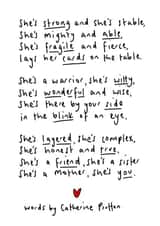 She's strong and she's stable,
She's mighty and able.
She's fragile and fierce,
lays her cards on the table.
She's a warrior, she's witty,
She's wonderful and wise,
She's there by your side
in the blink of an eye.
She's layered, she's complex,
She's honest and true,
She's a friend, she's a sister
She's a mother, she's you.
words by Catherine Prutton